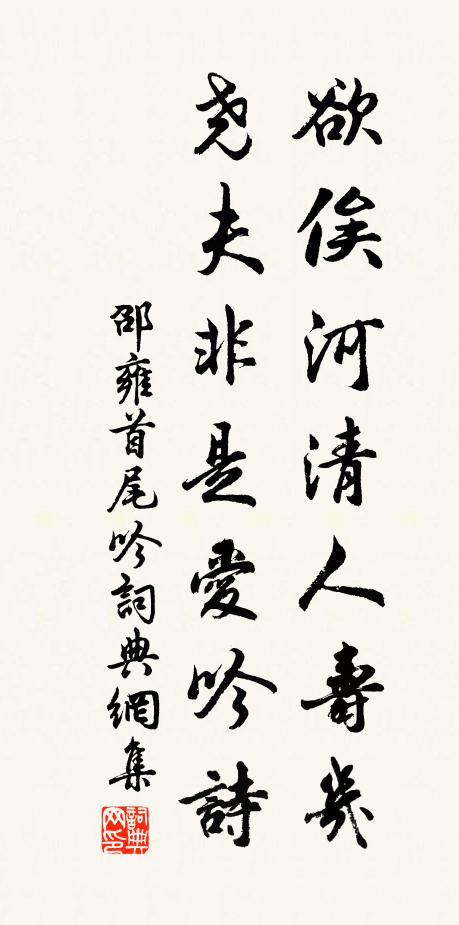 欲俟河清人壽幾
尧夫非是愛吟詩
邵雍首尾吟詞典網集
詞典网印